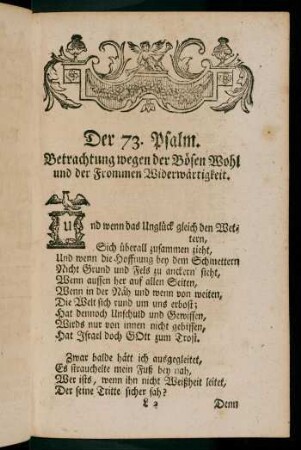 Der 73. Psalm.
Betrachtung wegen der Bösen Wohl
und der Frommen Widerwärtigkeit.
Und wenn das Unglück gleich den Wet-
tern,
Sich überall zusammen zieht,
Und wenn die Hoffnung bey dem Schmettern
Nicht Grund und Fels zu anckern sieht,
Wenn aussen her auf allen Seiten,
Wenn in der Näh und wenn von weiten,
Die Welt sich rund um uns erbost;
Hat dennoch Unschuld und Gewissen,
Wirds nur von innen nicht gebissen,
Hat Israel doch GOtt zum Trost.
Zwar balde hätt ich ausgegleitet,
Es strauchelte mein Fuß bey nah,
Wer ists, wenn ihn nicht Weißheit leitet,
Der seine Tritte sicher sah?
L 2 Denn